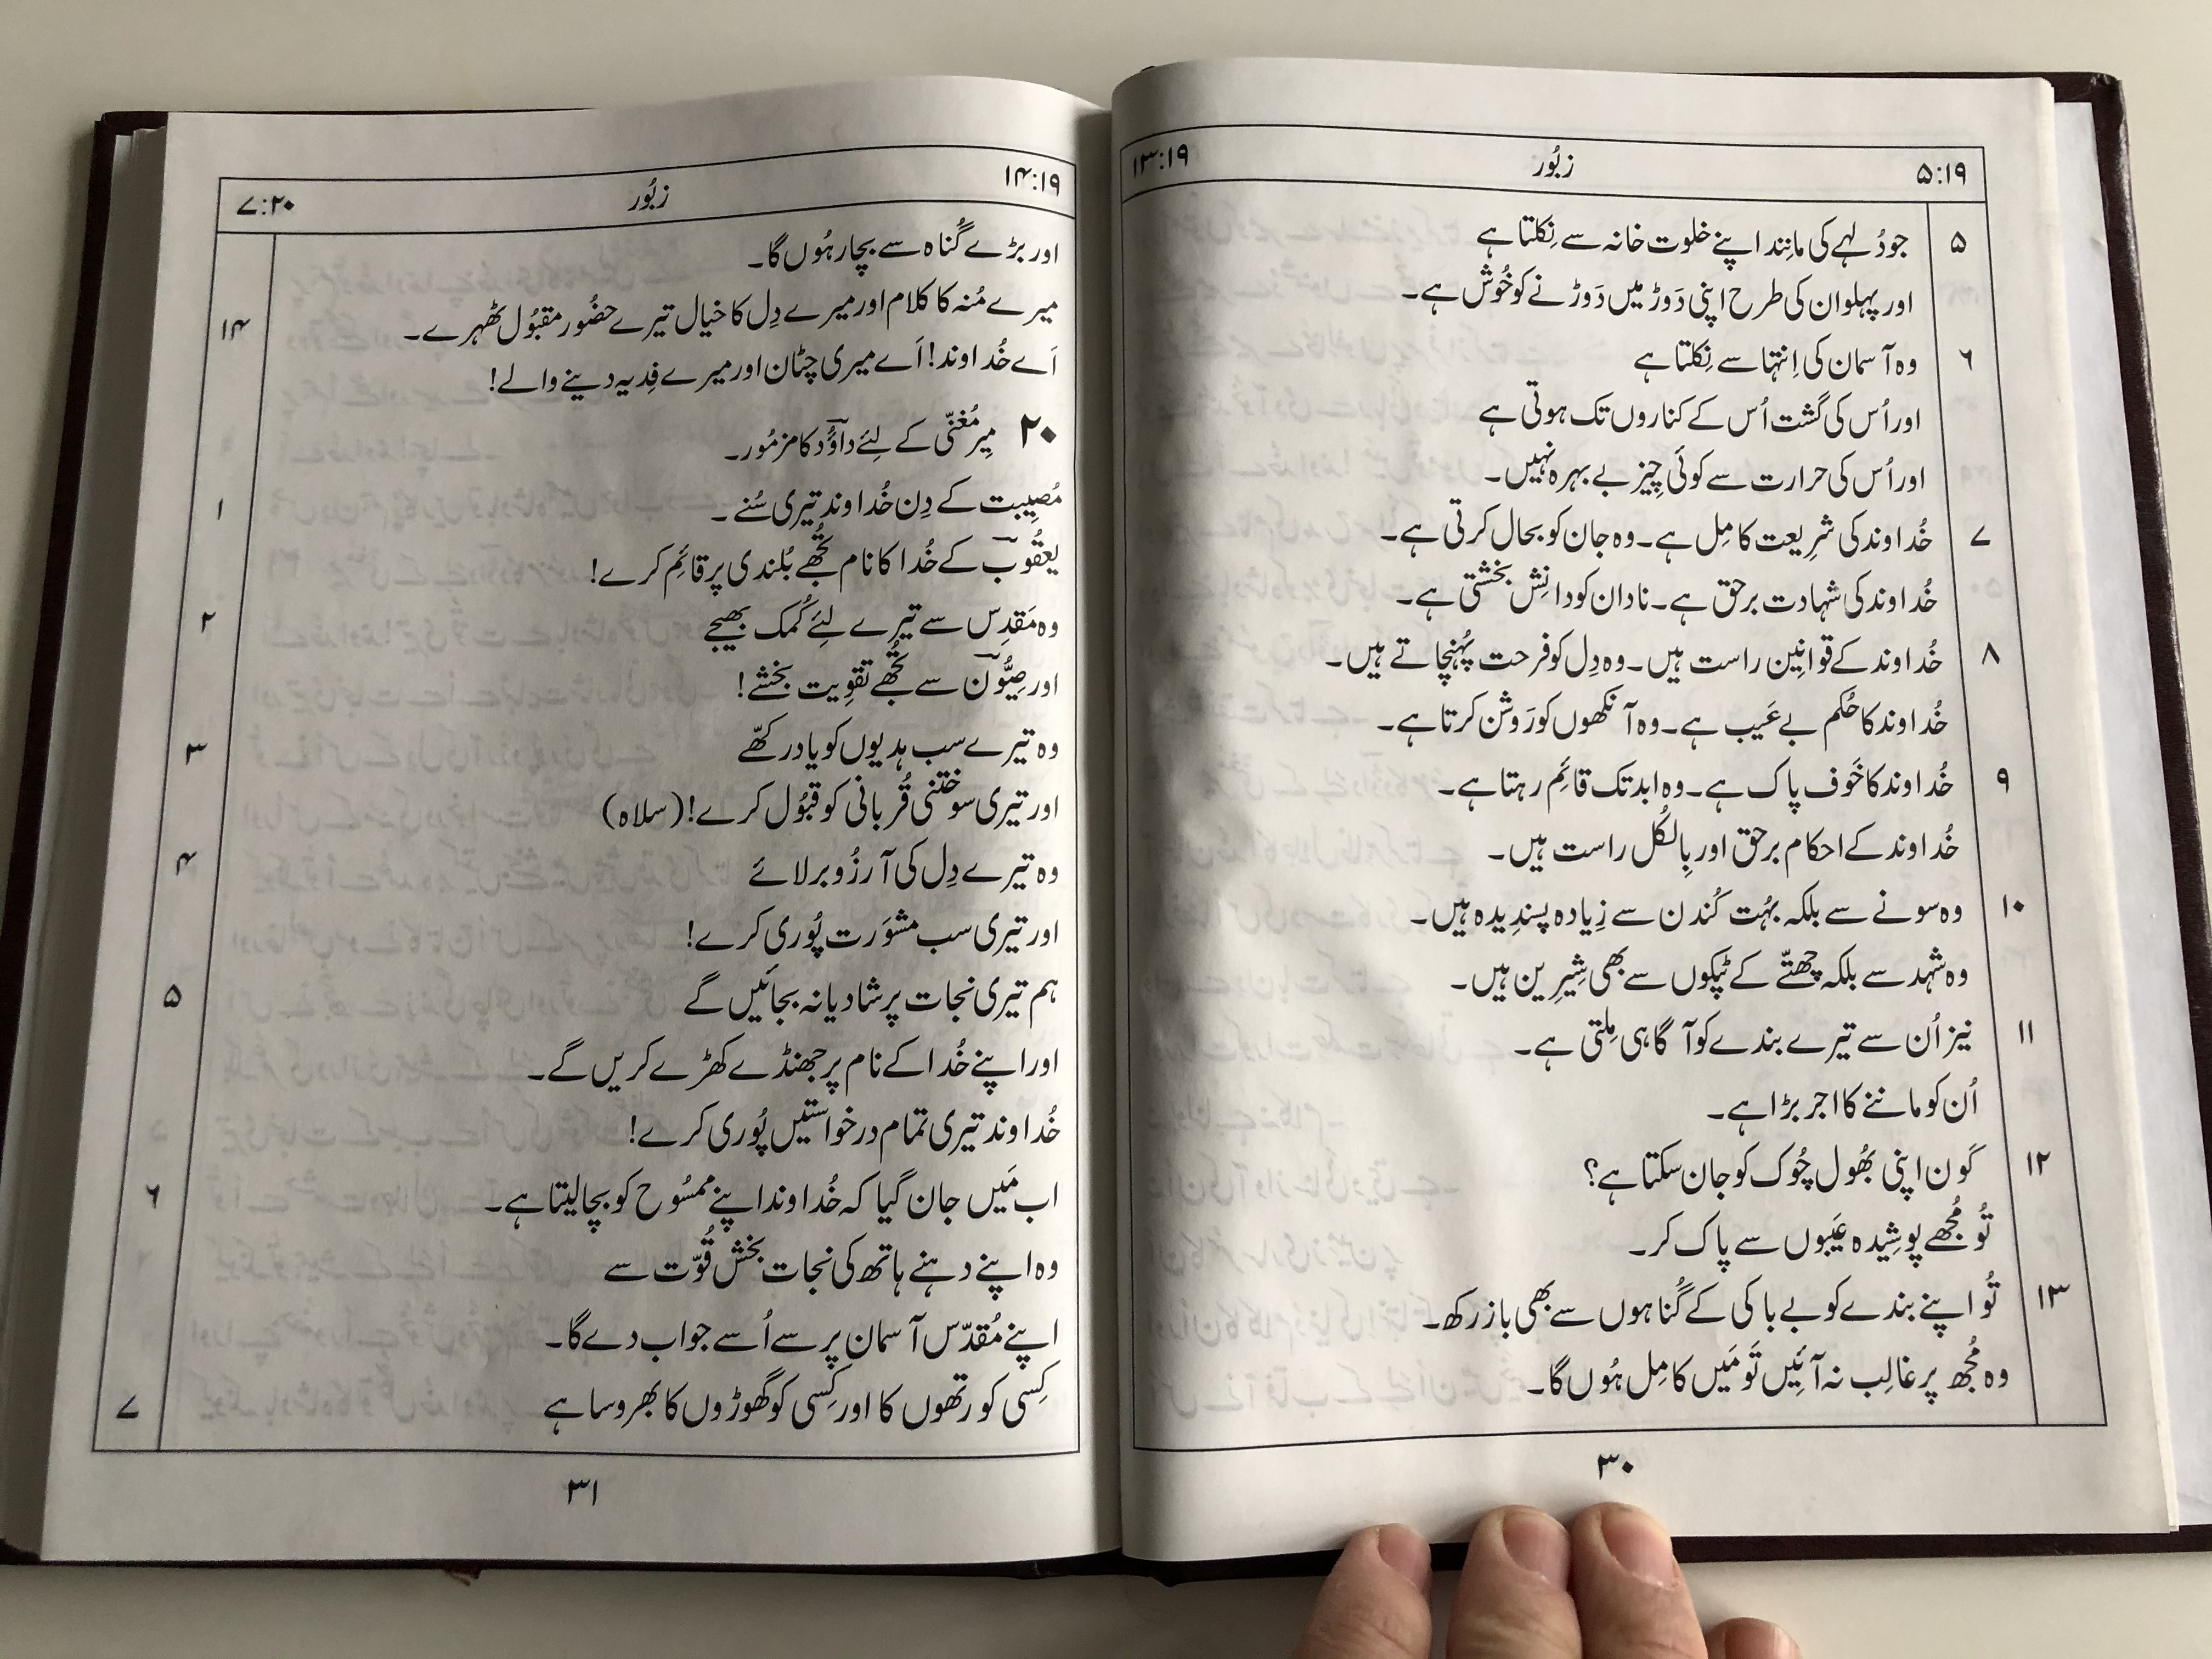 ۵:۱۹ زبُور ۱۳:۱۹
۵ جو دُلہے کی مانِند اپنے خلوت خانہ سے نِکلتا ہے
اور پہلوان کی طرح اپنی دَوڑ میں دَوڑنے کو خُوش ہے۔
۶ وہ آسمان کی اِنتہا سے نِکلتا ہے
اور اُس کی گشت اُس کے کناروں تک ہوتی ہے
اور اُس کی حرارت سے کوئی چِیز بے بہرہ نہیں۔
۷ خُداوند کی شرِیعت کامِل ہے۔ وہ جان کو بحال کرتی ہے۔
خُداوند کی شہادت برحق ہے۔ نادان کو دانِش بخشتی ہے۔
۸ خُداوند کے قوانِین راست ہیں۔ وہ دِل کو فرحت پہُنچاتے ہیں۔
خُداوند کا حُکم بے عَیب ہے۔ وہ آنکھوں کو رَوشن کرتا ہے۔
۹ خُداوند کا خَوف پاک ہے۔ وہ ابد تک قائِم رہتا ہے۔
خُداوند کے احکام برحق اور بِالکُل راست ہیں۔
۱۰ وہ سونے سے بلکہ بہُت کُندن سے زِیادہ پسندِیدہ ہیں۔
وہ شہد سے بلکہ چھتّے کے ٹپکوں سے بھی شِیرِین ہیں۔
۱۱ نیز اُن سے تیرے بندے کو آگاہی مِلتی ہے۔
اُن کو ماننے کا اجر بڑا ہے۔
۱۲ کَون اپنی بھُول چُوک کو جان سکتا ہے؟
تُو مُجھے پوشِیدہ عَیبوں سے پاک کر۔
۱۳ تُو اپنے بندے کو بے باکی کے گُناہوں سے بھی باز رکھ۔
وہ مُجھ پر غالِب نہ آئیں تَو مَیں کامِل ہُوں گا۔
۳۰
۱۴:۱۹ زبُور ۷:۲۰
اور بڑے گُناہ سے بچا رہُوں گا۔
۱۴ میرے مُنہ کا کلام اور میرے دِل کا خیال تیرے حضُور مقبُول ٹھہرے۔
اَے خُداوند! اَے میری چٹان اور میرے فِدیہ دینے والے!
۲۰ مِیر مُغنّی کے لِئے داؤد کا مزمُور۔
۱ مُصِیبت کے دِن خُداوند تیری سُنے۔
یعقُوب کے خُدا کا نام تُجھے بُلندی پر قائِم کرے!
۲ وہ مَقدِس سے تیرے لِئے کُمک بھیجے
اور صِیُّون سے تُجھے تقوِیت بخشے!
۳ وہ تیرے سب ہدیوں کو یاد رکھّے
اور تیری سوختنی قُربانی کو قبُول کرے! (سلاہ)
۴ وہ تیرے دِل کی آرزُو بر لائے
اور تیری سب مشوَرت پُوری کرے!
۵ ہم تیری نجات پر شادیانہ بجائیں گے
اور اپنے خُدا کے نام پر جھنڈے کھڑے کریں گے۔
خُداوند تیری تمام درخواستیں پُوری کرے!
۶ اب مَیں جان گیا کہ خُداوند اپنے ممسُوح کو بچا لیتا ہے۔
وہ اپنے دہنے ہاتھ کی نجات بخش قُوّت سے
اپنے مُقدّس آسمان پر سے اُسے جواب دے گا۔
۷ کِسی کو رتھوں کا اور کِسی کو گھوڑوں کا بھروسا ہے
۳۱